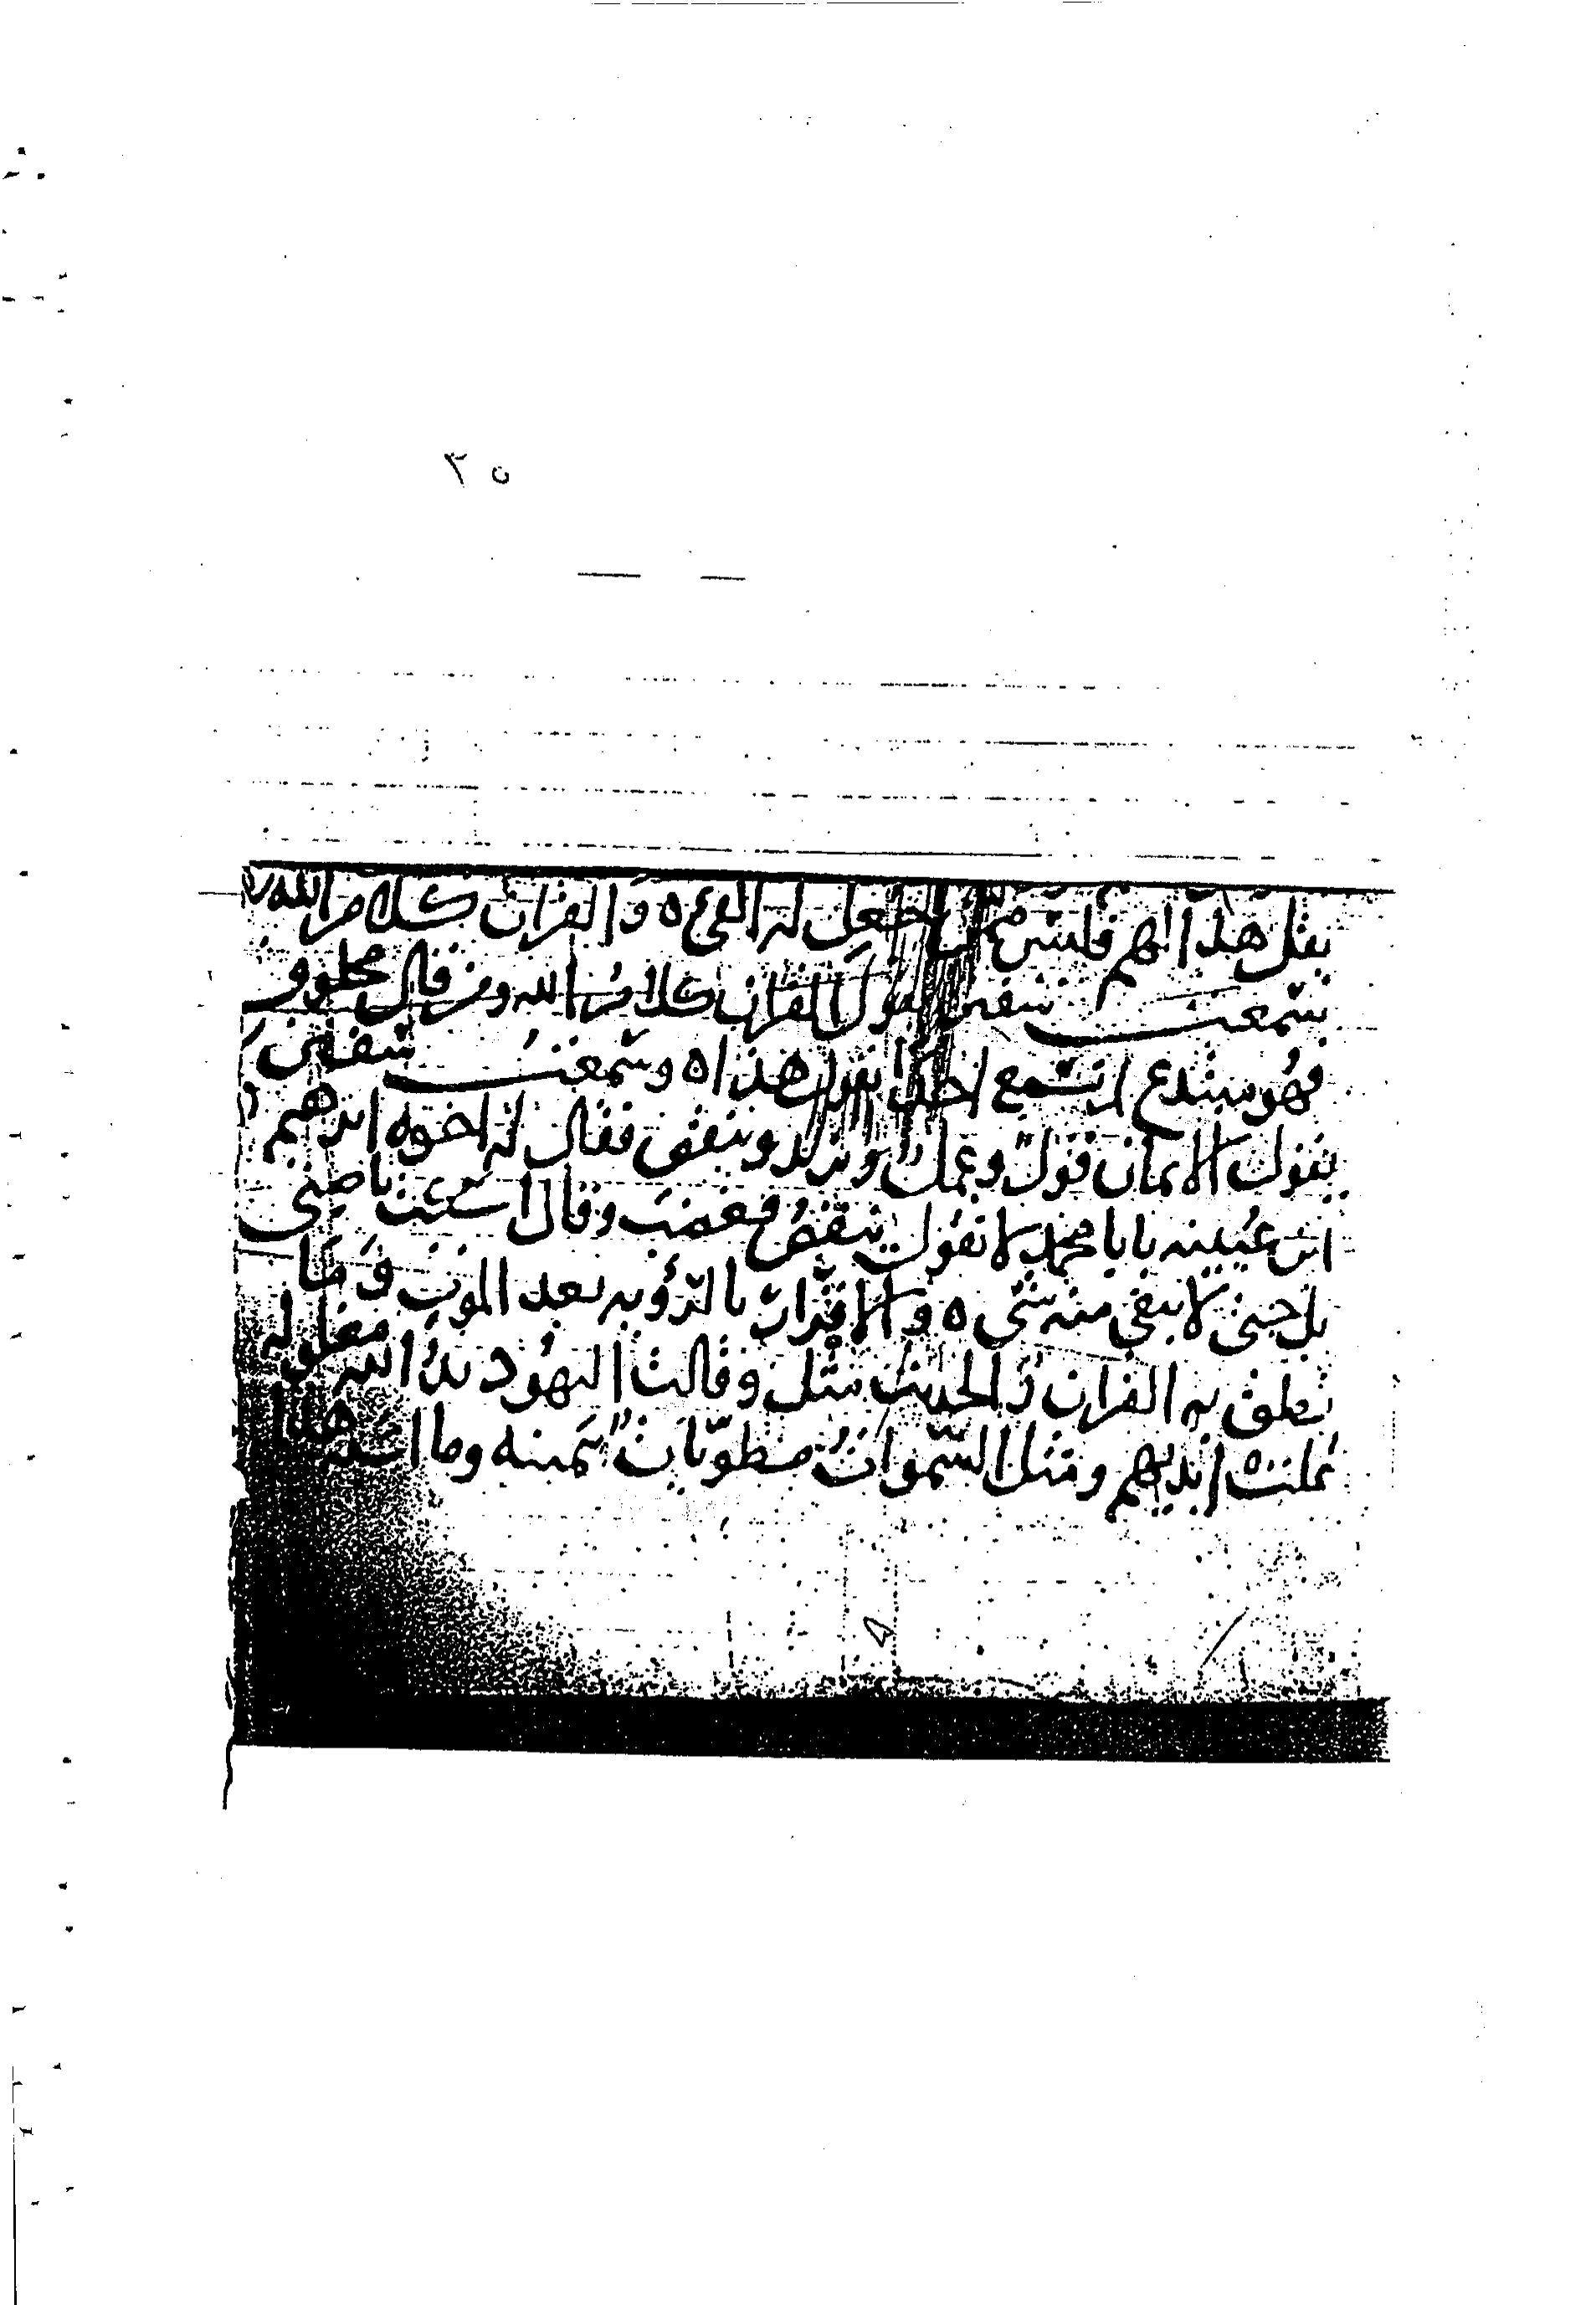 ٢٥
يقل هذا لهم فليس ممن جعل له الفيء ه والقران كلام الله
سمعت سفين يقول القران كلام الله ومن قال مخلوق
فهو مبتدع لم نسمع احدا يقول هذا ه وسمعت سفين
يقول الايمان قول وعمل ويزيد وينقص فقال له اخوه ابرهيم
ابن عيينه يابا محمد لا تقول ينقص فغضب وقال اسكت يا صبي
بل حتى لا يبقى منه شي ه والاقرار بالرؤيه بعد الموت وما
نطق به القران والحديث مثل وقالت اليهود يد الله مغلوله
غلت ايديهم ومثل السموات مطويات بيمينه وما اشبه هذا